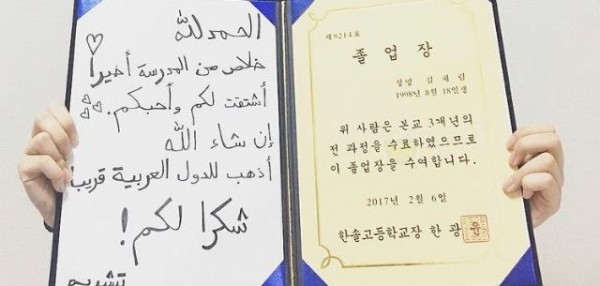 الحمد لله
خلاص من المدرسة أخيرا
أشتقت لكم وأحبكم.
إن شاء الله
أذهب للدول العربية قريبا
شكرا لكم!
제9214호
졸 업 장
성명 김 재 림
1998년 8월 18일생
위 사람은 본교 3개년의
전 과정을 수료하였으므로
이 졸업장을 수여합니다.
2017년 2월 6일
한솔고등학교장 한 광 윤